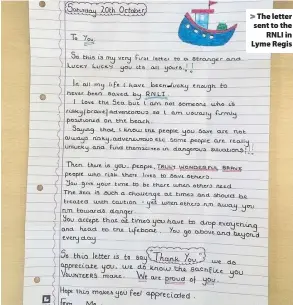 Saturday 20th October
To You,
So this is my very first letter to a stranger and
lucky lucky you its all yours!!
In all my life I have been lucky enough to
never been saved by RNLI.
I love the sea but I am not someone who is
risky/brave/adventorous so I am usually firmly
positioned on the beach.
Saying that, I know the people you save are not
always risky, adventurous like some people are really
unlucky and find themselves in dangerous situations!!!
Then there is you.. people, TRULY WONDERFUL BRAVE
people who risk there lives to save others.
You give your time to be there when others need.
The sea is such a challenge at times and should be
treated with caution - yet when others run away you
run towards danger.
You accept that at times you have to drop everything
and head to the lifeboat. You go above and beyond
everyday.
So this letter is to say Thank You, we do
appreciate you, we do know the sacrifice you
VOLUNTEERS make. We are proud of you.
Hope this makes you feel appreciated.
From Me
> The letter
sent to the
RNLI in
Lyme Regis